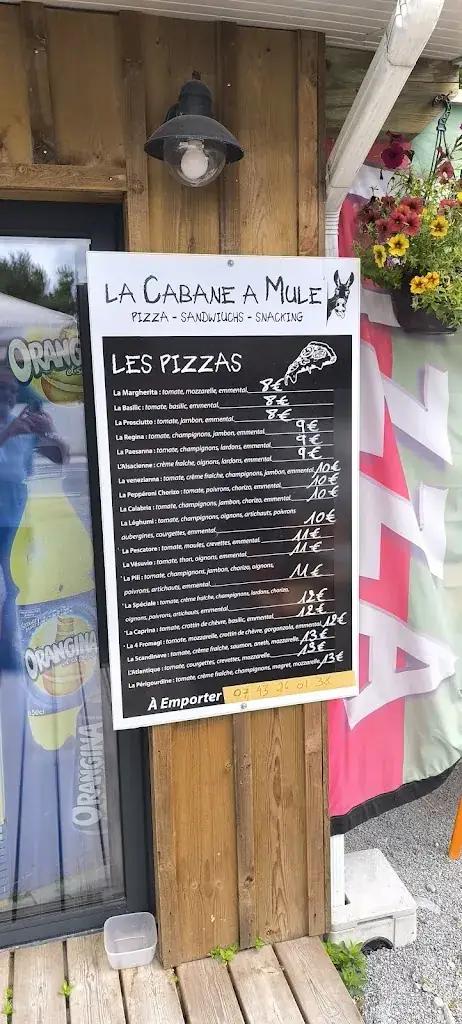 LA CABANE A MULE
PIZZA - SANDWIUCHS - SNACKING
LES PIZZAS
La Margherita : tomate, mozzarelle, emmental 8€
La Basilic : tomate, basilic, emmental 8€
La Prosciutto : tomate, jambon, emmental 8€
La Regina : tomate, champignons, jambon, emmental 9€
La Paesanna : tomate, champignons, lardons, emmental 9€
L'Alsacienne : crème fraîche, oignons, lardons, emmental 9€
La venezianna : tomate, crème fraîche, champignons, jambon, emmental 10€
La Peppéroni Chorizo : tomate, poivrons, chorizo, emmental 10€
La Calabria : tomate, champignons, jambon, chorizo, emmental 10€
La Léghumi : tomate, champignons, aignons, artichauts, poivrons
aubergines, courgettes, emmental 10€
La Pescatore : tomate, moules, crevettes, emmental 11€
La Vésuvio : tomate, thon, oignons, emmental 11€
La Pili : tomate, champignons, jambon, chorizo, oignons,
poivrons, artichauts, emmental 11€
La Spéciale : tomate, crème fraîche, champignons, lardons, chorizo,
oignons, poivrons, artichauts, emmental 12€
La Caprina : tomate, crottin de chèvre, basilic, emmental 12€
La 4 Fromagi : tomate, mozzarelle, crottin de chèvre, gorgonzola, emmental 12€
La Scandinave : tomate, crème fraîche, saumon, aneth, mozzarelle 13€
L'Atlantique : tomate, courgettes, crevettes, mozzarelle 13€
La Périgourdine : tomate, crème fraîche, champignons, magret, mozzarelle 13€
À Emporter
ORANG
ORANGINA
ORANGINA